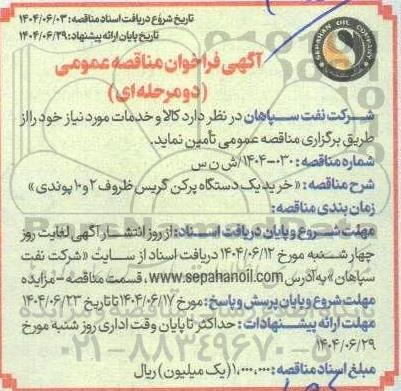 تاریخ شروع دریافت اسناد مناقصه: ۱۴۰۴/۰۶/۰۳
تاریخ پایان ارائه پیشنهاد: ۱۴۰۴/۰۶/۲۹
SEPAHAN OIL COMPANY
آگهی فراخوان مناقصه عمومی
(دو مرحله ای)
شرکت نفت سپاهان در نظر دارد کالا و خدمات مورد نیاز خود را از
طریق برگزاری مناقصه عمومی تأمین نماید.
شماره مناقصه: ۰۳۰-۱۴۰۴/ش ن س
شرح مناقصه: «خرید یک دستگاه پرکن گریس ظروف ۲ و ۱۰ پوندی»
زمان بندی مناقصه:
مهلت شروع و پایان دریافت اسناد: از روز انتشار آگهی لغایت روز
چهارشنبه مورخ ۱۴۰۴/۰۶/۱۲ دریافت اسناد از سایت «شرکت نفت
سپاهان» به آدرس www.sepahanoil.com، قسمت مناقصه - مزایده
مهلت شروع و پایان پرسش و پاسخ: مورخ ۱۴۰۴/۰۶/۱۷ تا تاریخ ۱۴۰۴/۰۶/۲۳
مهلت ارائه پیشنهادات: حداکثر تا پایان وقت اداری روز شنبه مورخ
۱۴۰۴/۰۶/۲۹
مبلغ اسناد مناقصه: ۱,۰۰۰,۰۰۰ (یک میلیون) ریال
۰۲۱-۸۸۳۴۹۶۷۰-۵